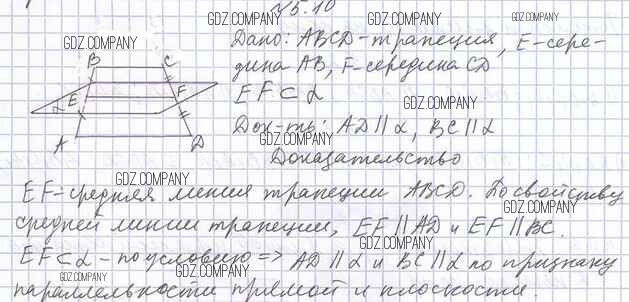 №5.10
GDZ.COMPANY
GDZ.COMPANY
GDZ.COMPANY
GDZ.COMPANY
Дано: ABCD-трапеция, E-сере-
GDZ.COMPANY
дина AB, F-середина CD
B C
E F
EF⊂α
α
GDZ.COMPANY
GDZ.COMPANY
Док-ть: AD∥α, BC∥α
GDZ.COMPANY
A D
Доказательство
GDZ.COMPANY
EF-средняя линия трапеции ABCD. По свойству
GDZ.COMPANY
средней линии трапеции, EF∥AD и EF∥BC.
GDZ.COMPANY
EF⊂α-по условию => AD∥α и BC∥α по признаку
GDZ.COMPANY
GDZ.COMPANY
параллельности прямой и плоскости.